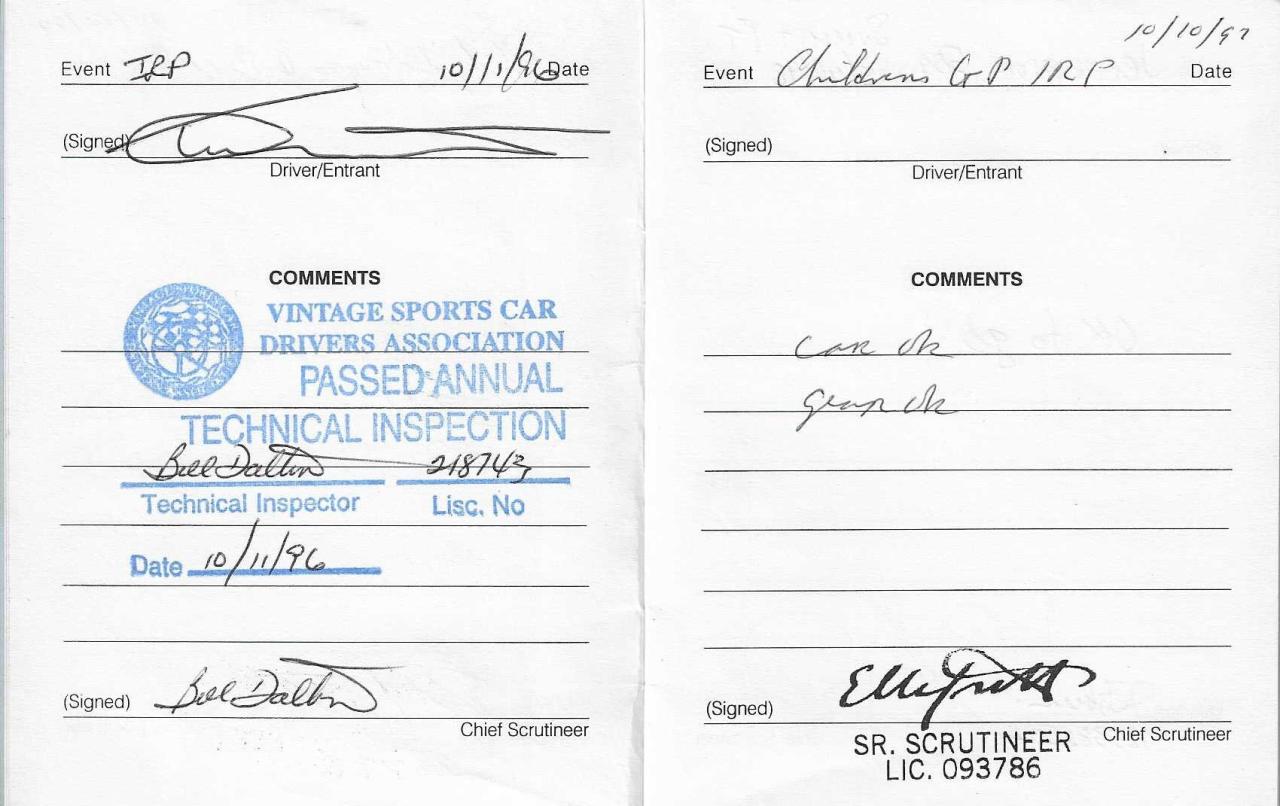 Event IRP 10/11/96 Date
(Signed)
Driver/Entrant
COMMENTS
VINTAGE SPORTS CAR
DRIVERS ASSOCIATION
PASSED ANNUAL
TECHNICAL INSPECTION
Bill Dalton 218743
Technical Inspector Lisc. No
Date 10/11/96
(Signed) Bill Dalton
Chief Scrutineer
10/10/97
Event Childrens GP IRP Date
(Signed)
Driver/Entrant
COMMENTS
car ok
gear ok
(Signed)
Chief Scrutineer
SR. SCRUTINEER
LIC. 093786